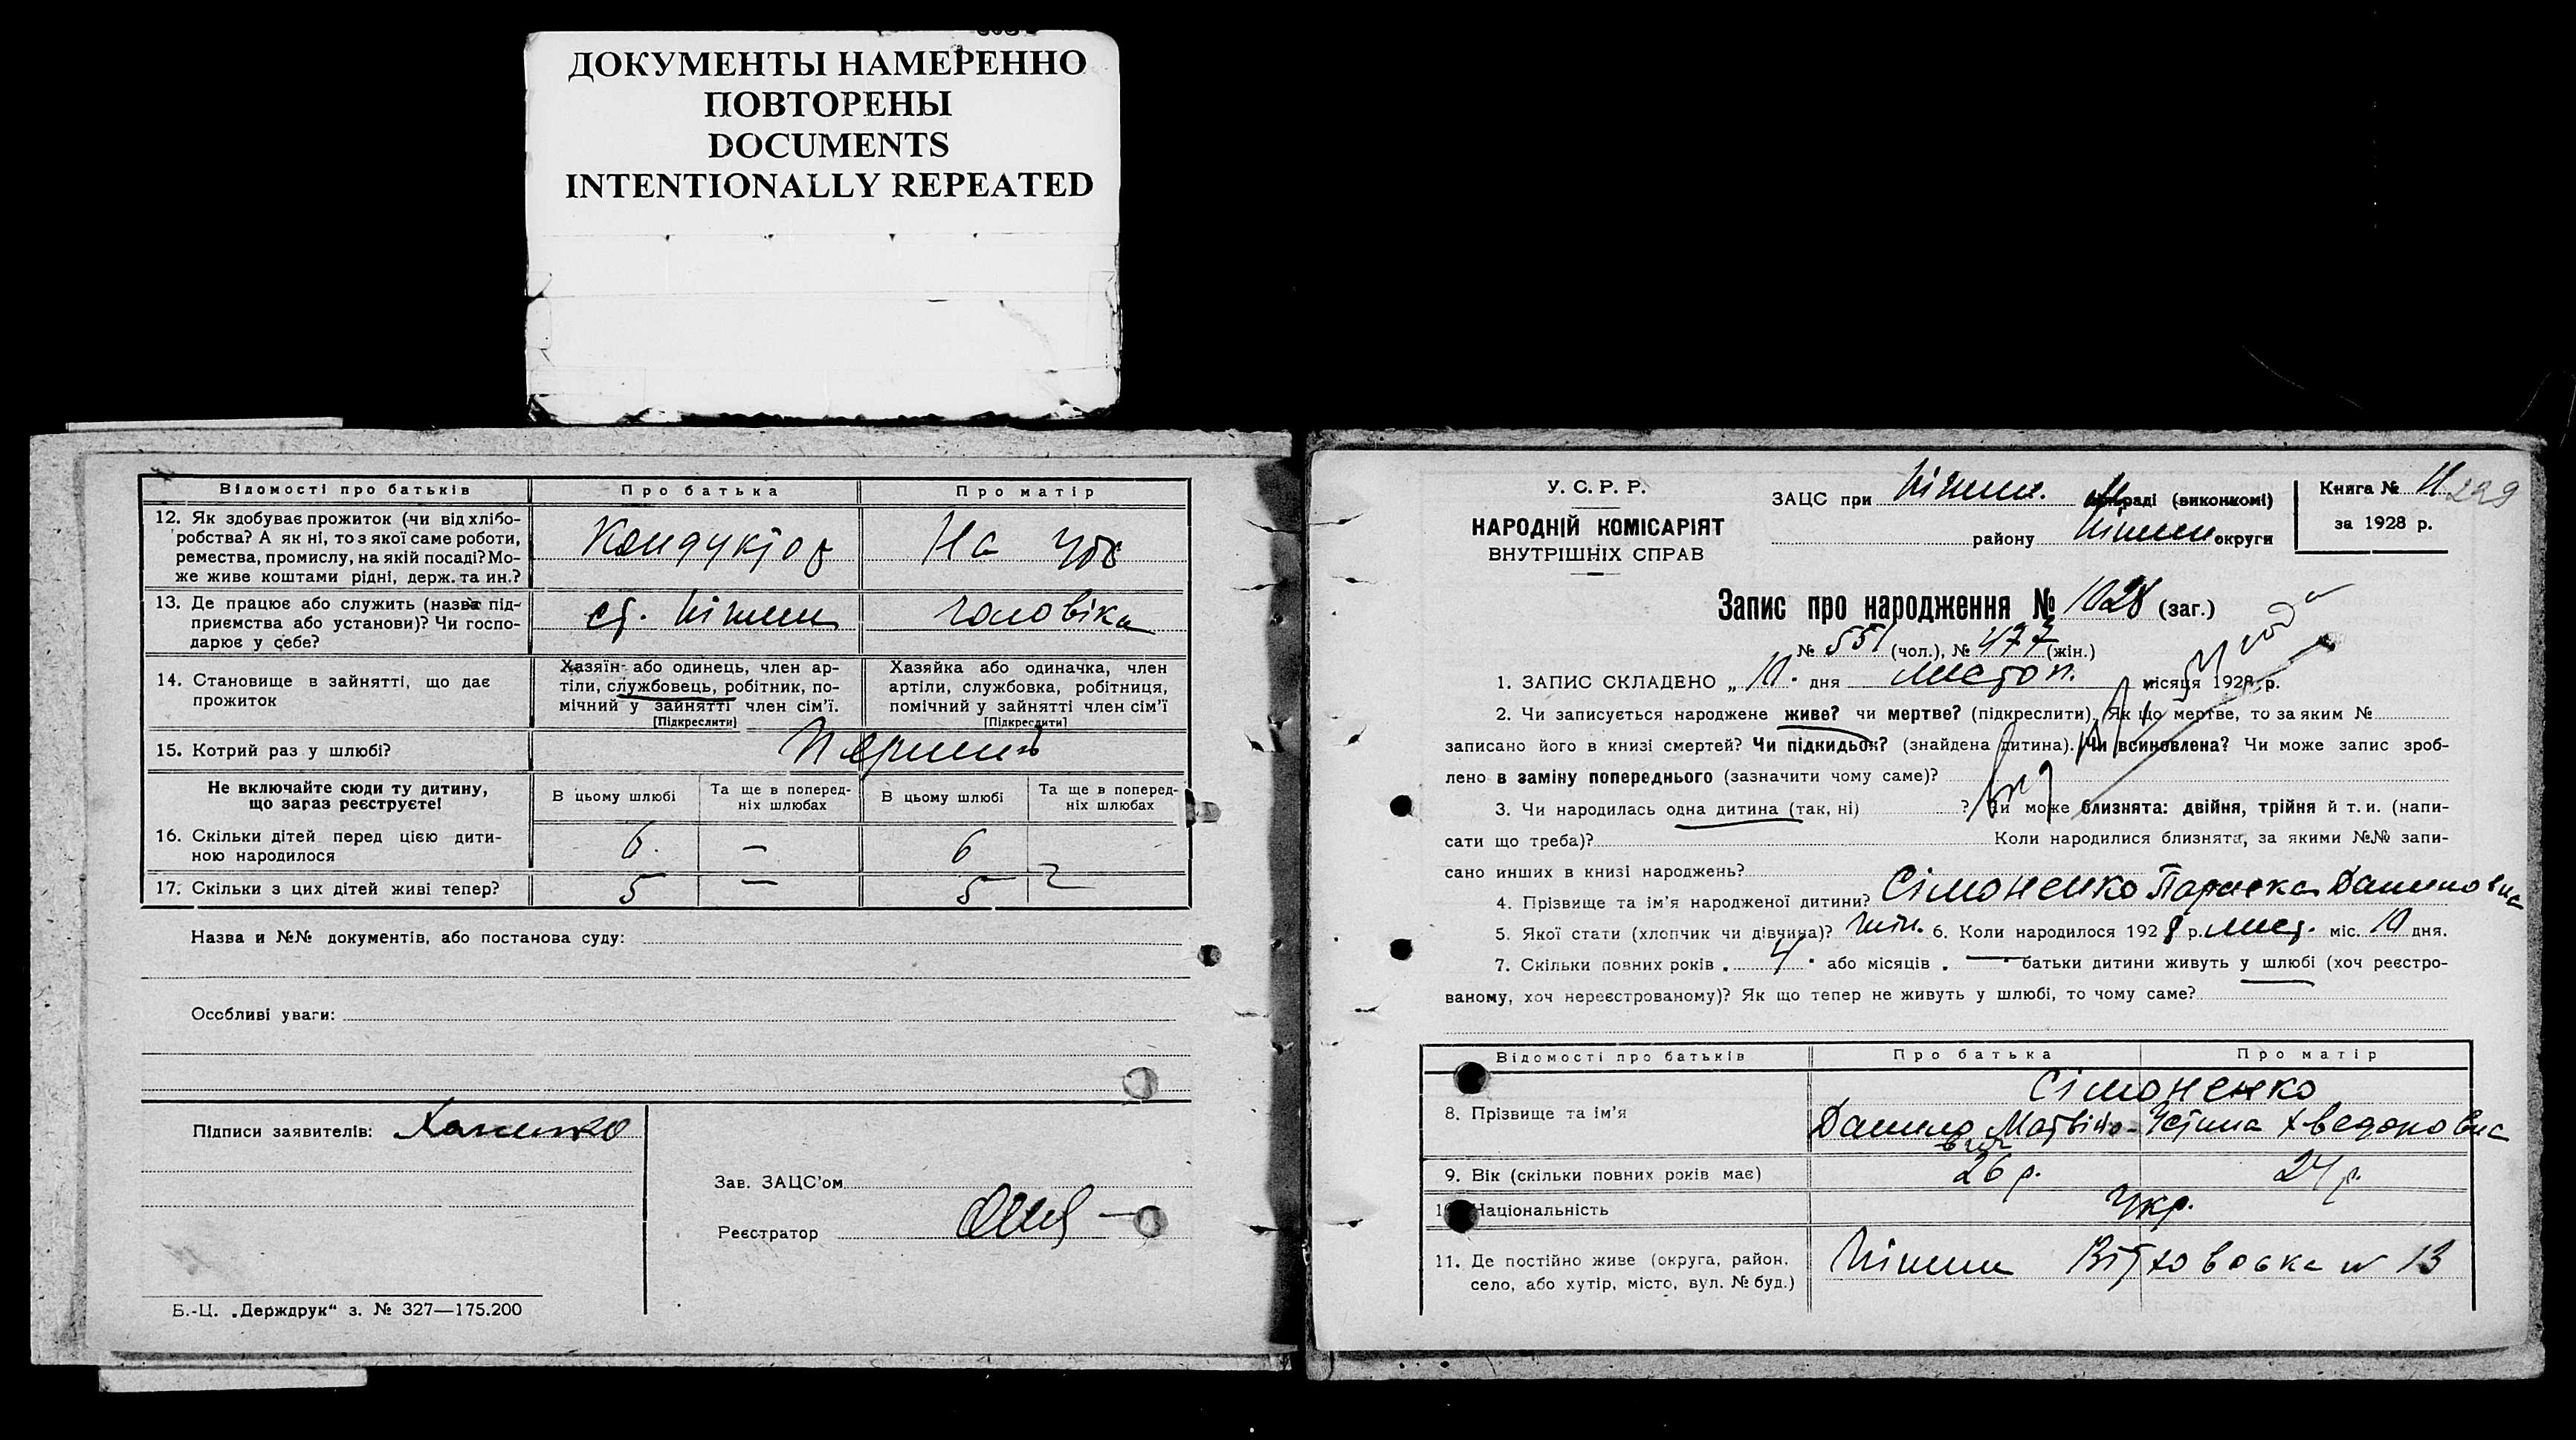 ДОКУМЕНТЫ НАМЕРЕННО
ПОВТОРЕНЫ
DOCUMENTS
INTENTIONALLY REPEATED
Відомості про батьків
Про батька
Про матір
12. Як здобуває прожиток (чи від хлібо-
робства? А як ні, то з якої саме роботи,
ремества, промислу, на якій посаді? Мо-
же живе коштами рідні, держ. та ин.?
Кондуктор
На утр
13. Де працює або служить (назва під-
приємства або установи)? Чи госпо-
дарює у себе?
ст. Ніжин
чоловіка
14. Становище в зайнятті, що дає
прожиток
Хазяїн або одинець, член ар-
тіли, службовець, робітник, по-
мічний у зайнятті член сім'ї.
[Підкреслити]
Хазяйка або одиначка, член
артіли, службовка, робітниця,
помічний у зайнятті член сім'ї
[Підкреслити]
15. Котрий раз у шлюбі?
Перший
Не включайте сюди ту дитину,
що зараз реєструєте!
В цьому шлюбі
Та ще в поперед-
ніх шлюбах
В цьому шлюбі
Та ще в поперед-
ніх шлюбах
16. Скільки дітей перед цією дити-
ною народилося
6.
—
6
17. Скільки з цих дітей живі тепер?
5
—
5
Назва и №№ документів, або постанова суду:
Особливі уваги:
Підписи заявителів:
Зав. ЗАЦС'ом
Реєстратор
Б.-Ц. „Держдрук" з. № 327—175.200
У. С. Р. Р.
НАРОДНІЙ КОМІСАРІЯТ
ВНУТРІШНІХ СПРАВ
ЗАЦС при Ніжин. раді (виконкомі)
району Ніжин округи
Книга № 11 229
за 1928 р.
Запис про народження № 1028 (заг.)
№ 551 (чол.), № 477 (жін.)
1. ЗАПИС СКЛАДЕНО „ 10. дня листоп. місяця 1928 р.
2. Чи записується народжене живе? чи мертве? (підкреслити). Як що мертве, то за яким №
записано його в книзі смертей? Чи підкидьок? (знайдена дитина). Чи всиновлена? Чи може запис зроб-
лено в заміну попереднього (зазначити чому саме)?
3. Чи народилась одна дитина (так, ні) ? Чи може близнята: двійня, трійня й т. и. (напи-
сати що треба)? Коли народилися близнята, за якими №№ запи-
сано инших в книзі народжень?
4. Прізвище та ім'я народженої дитини? Сімоненко Данилова
5. Якої стати (хлопчик чи дівчина)? жін. 6. Коли народилося 1928 р. лист. міс. 10 дня.
7. Скільки повних років 4 або місяців — батьки дитини живуть у шлюбі (хоч реєстро-
ваному, хоч нереєстрованому)? Як що тепер не живуть у шлюбі, то чому саме?
Відомості про батьків
Про батька
Про матір
8. Прізвище та ім'я
Сімоненко
Данило Матвійо-
вич
Устина Хведоровна
9. Вік (скільки повних років має)
26 р.
24 р.
10. Національність
Укр.
11. Де постійно живе (округа, район,
село, або хутір, місто, вул. № буд.)
Ніжин № 13